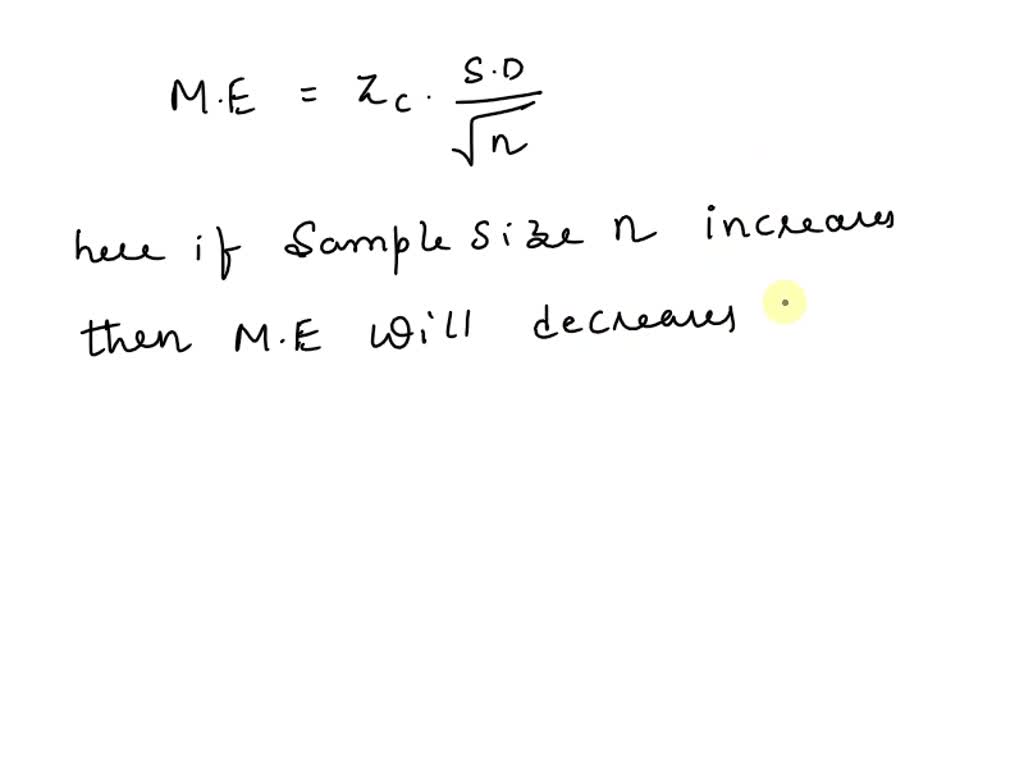 M.E = Zc . S.D / √n
here if Sample Size n increases
then M.E will decreases